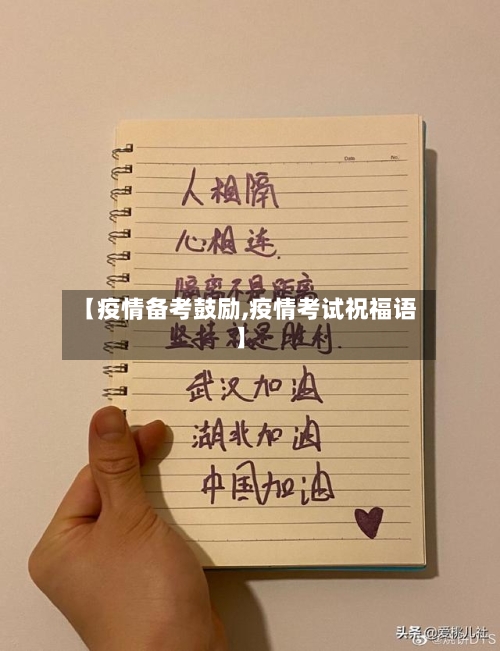 Date. No.
人相隔
心相连.
隔离不是距离
【疫情备考鼓励,疫情考试祝福语
】
坚持就是胜利.
武汉加油
湖北加油
中国加油
头条 @爱桃儿社